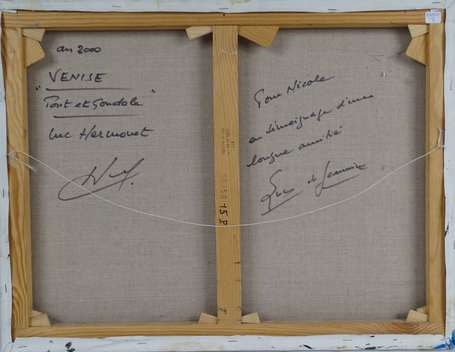 an 2000
"VENISE
Pont et Gondole"
Luc Hermouet
15P
Pour Nicole
en témoignage d'une
longue amitié
Luc et